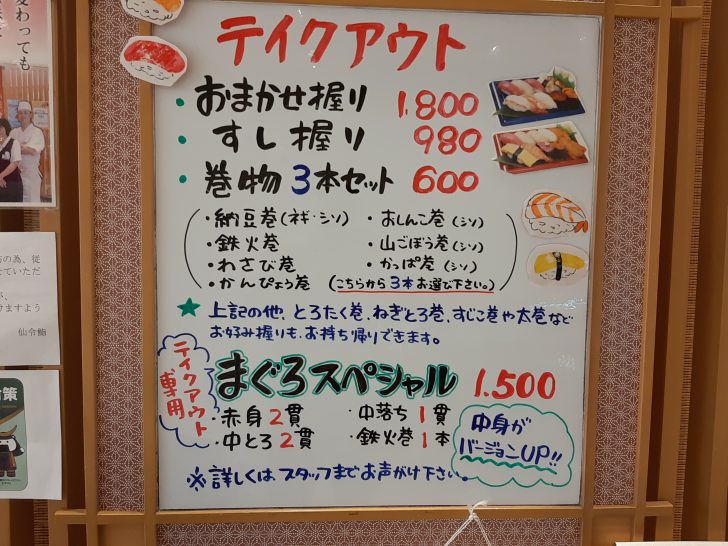 変わっても
テイクアウト
・おまかせ握り 1.800
・すし握り 980
・巻物3本セット 600
・納豆巻(ネギ・シソ) ・おしんこ巻(シソ)
・鉄火巻 ・山ごぼう巻(シソ)
・わさび巻 ・かっぱ巻(シソ)
・かんぴょう巻 (こちらから3本お選び下さい。)
★上記の他、とろたく巻、ねぎとろ巻、すじこ巻や太巻など
お好み握りも、お持ち帰りできます。
テイクアウト専用
まぐろスペシャル 1.500
・赤身2貫 ・中落ち1貫
・中とろ2貫 ・鉄火巻1本
中身が
バージョンUP!!
※詳しくはスタッフまでお声がけ下さい。
の為、従
せていただ
けますよう
仙令鮨
策